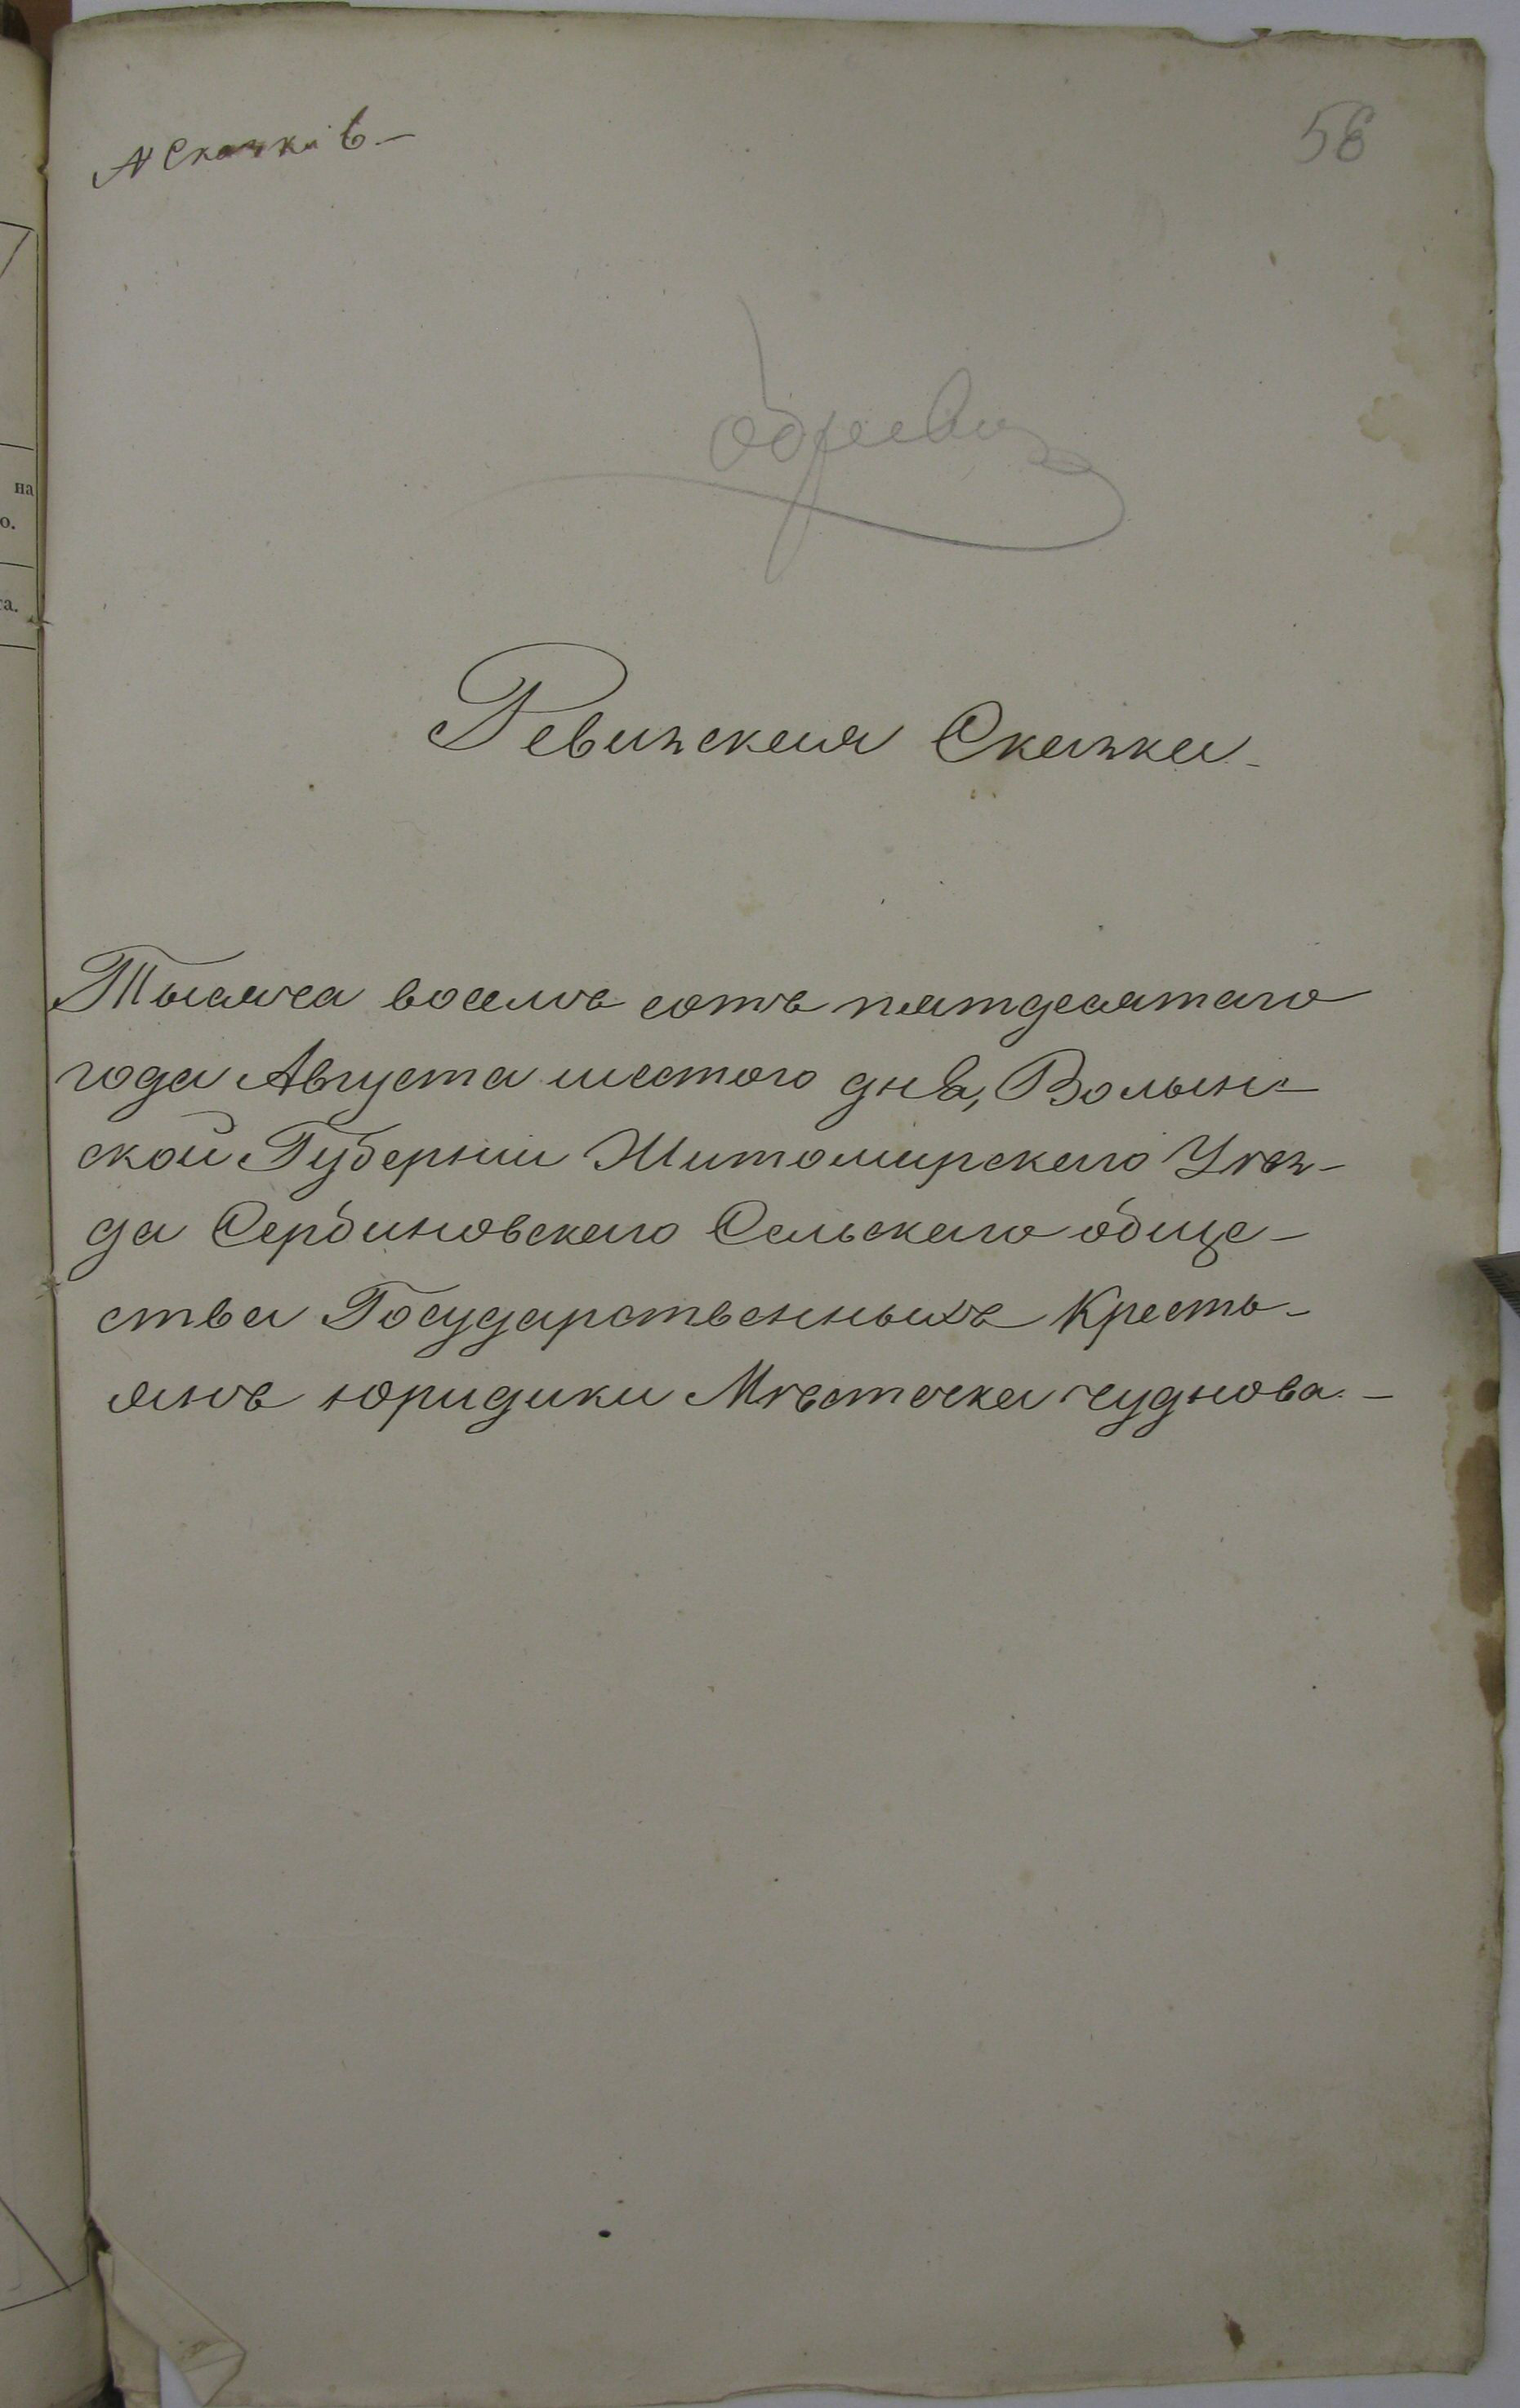 № Сказки 6 —
58
на
о.
га.
Ревизская Сказка
Тысяча восемь сотъ пятдесятаго
года Августа шестого дня, Волын-
ской Губерніи Житомирскаго Уѣз-
да Сербиновскаго Сельскаго обще-
ства Государственныхъ Кресть-
янъ юридики Мѣстечка Чуднова. —